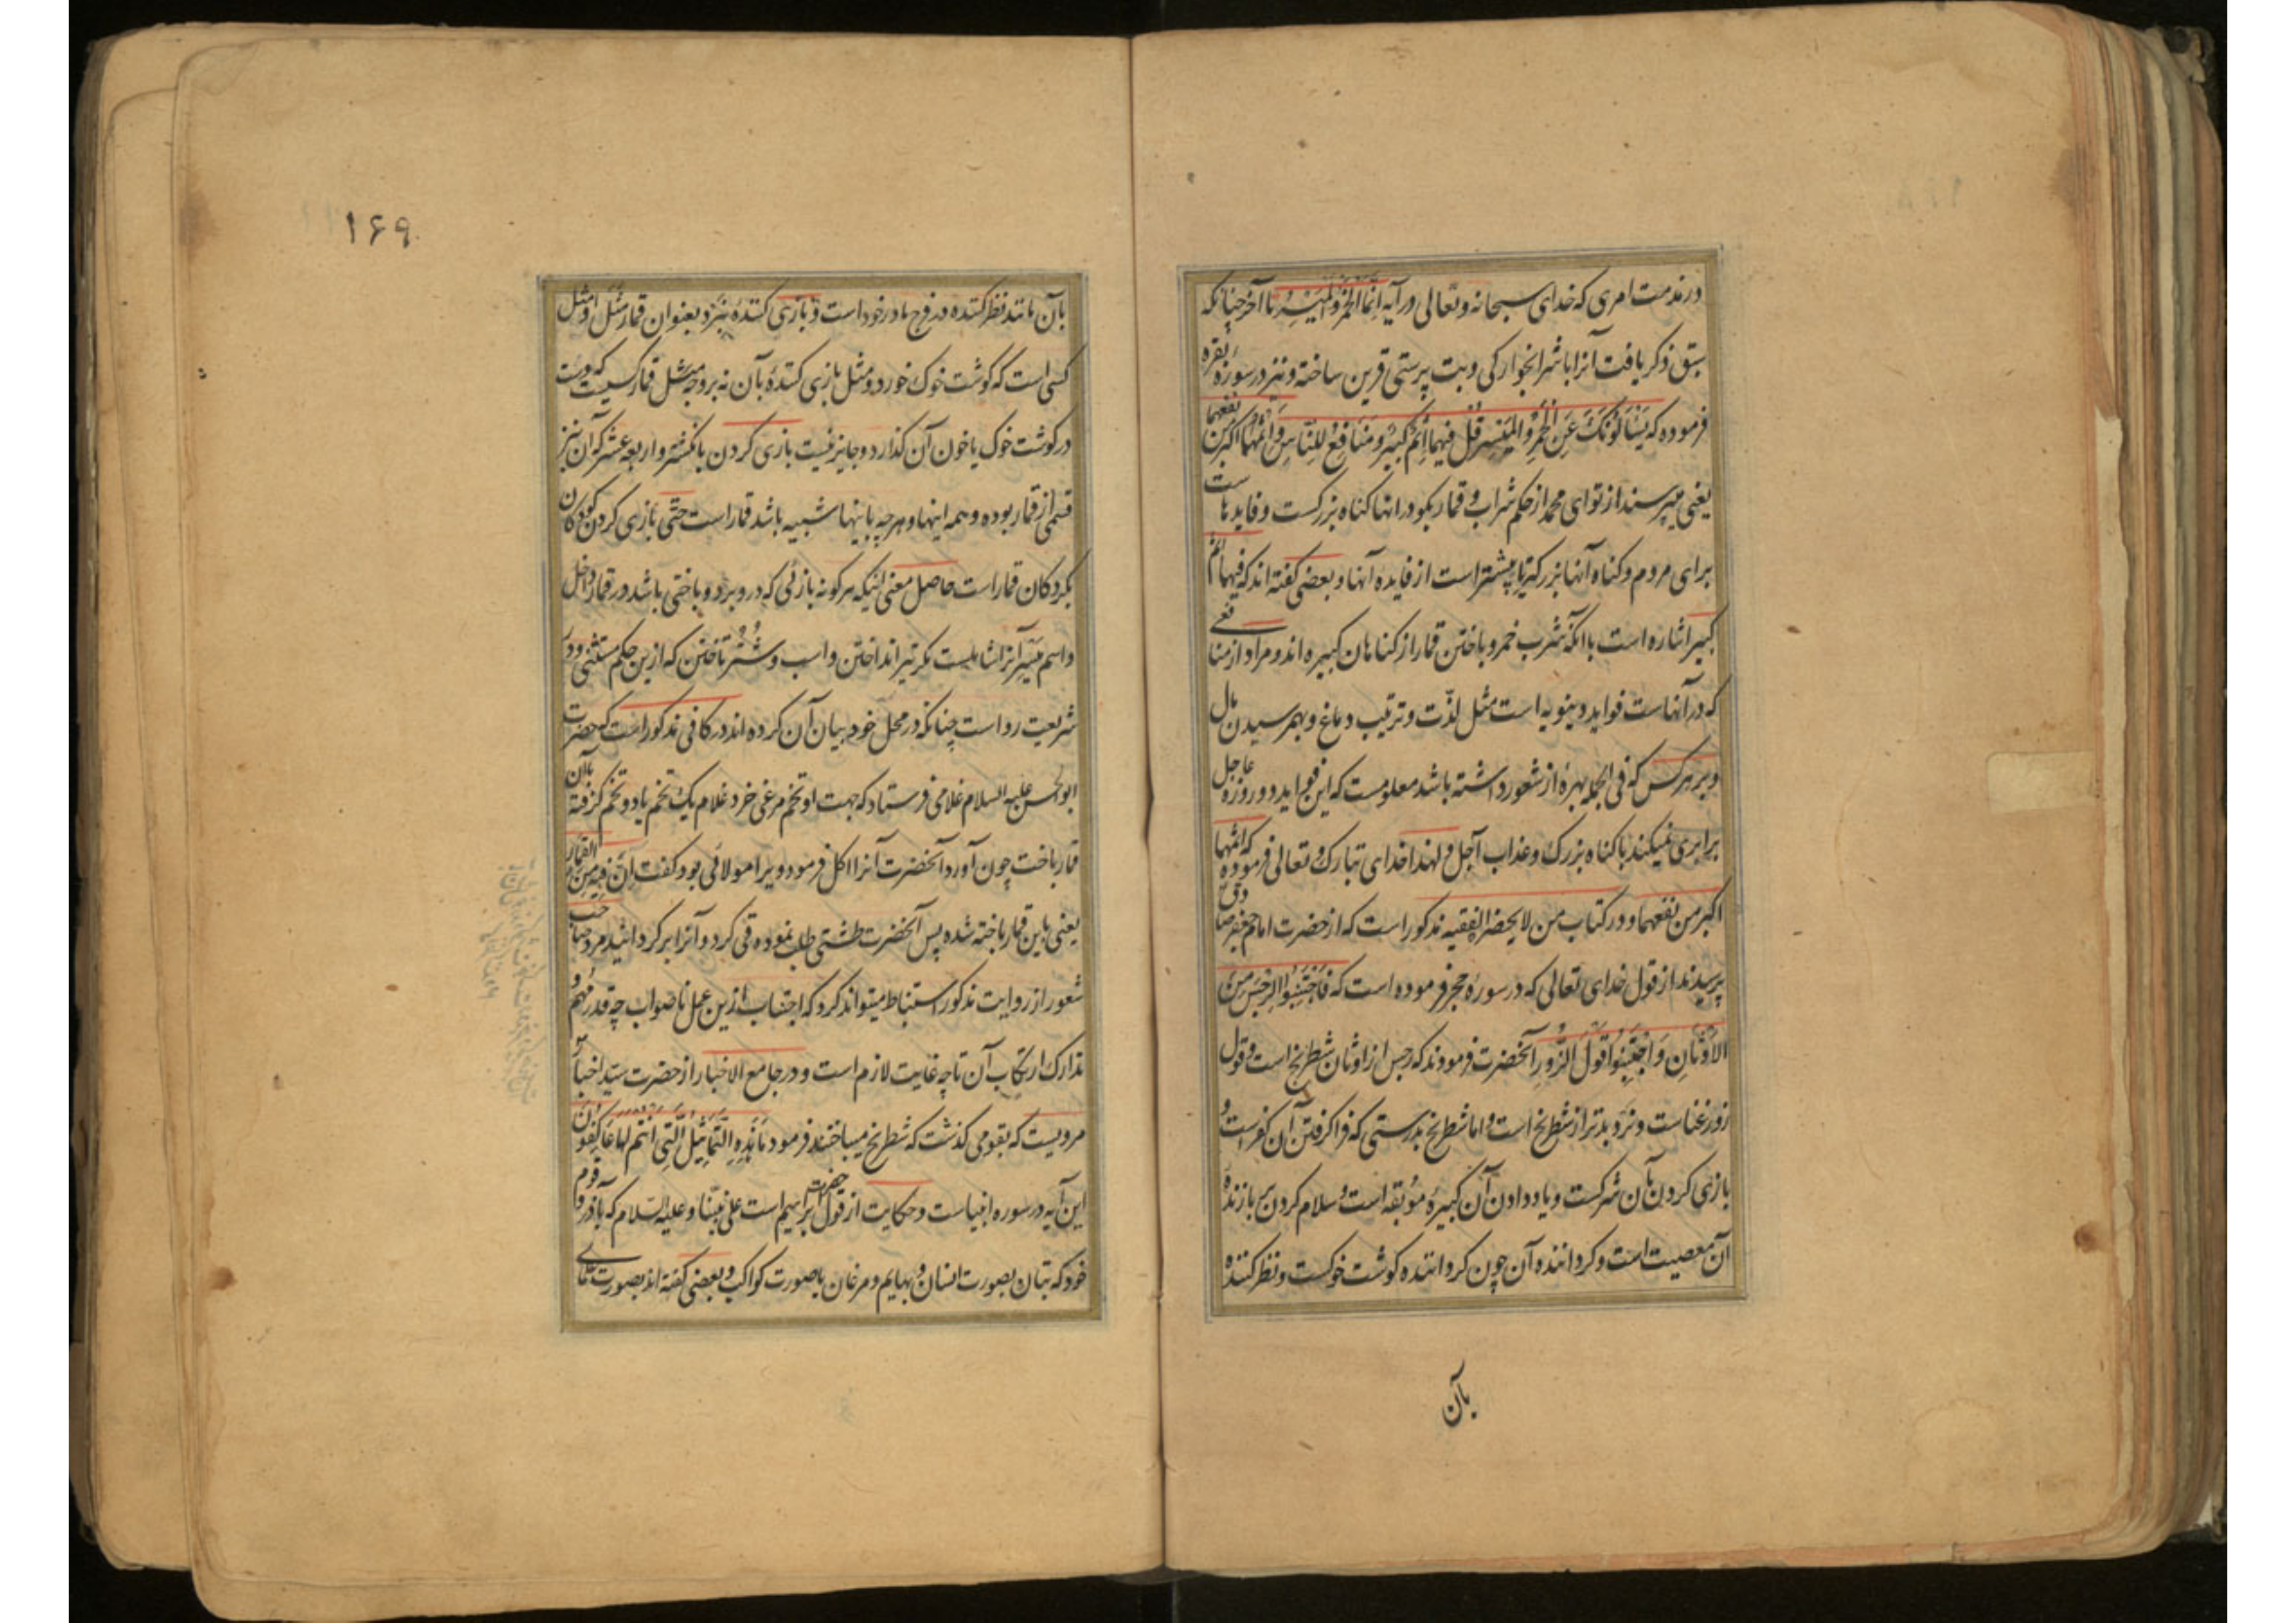 در مذمت امری که خدای سبحانه وتعالی در آیه اِنَّما الخَمْرُ وَالمَیْسِرُ تا آخر چنانکه
سبق ذکر یافت آنرا با شرابخوارکی وبت پرستی قرین ساخته ونیز در سورهٔ بقره
فرموده که یَسْئَلُونَکَ عَنِ الْخَمْرِ وَالْمَیْسِرِ قُلْ فِیهِما اِثْمٌ کَبِیرٌ وَمَنافِعُ لِلنّاسِ وَاِثْمُهُما اَکْبَرُ مِنْ نَفْعِهِما
یعنی میپرسند از تو ای محمد از حکم شراب و قمار بکو در انها کناه بزرکست وفایدهاست
برای مردم وکناه آنها بزرکتر یا بیشتر است از فایده آنها وبعضی کفته اند که فیهما اثم
کبیر اشاره است باانکه شرب خمر وباختن قمار از کناهان کبیره اند ومراد از منافعی
که در آنهاست فواید دینویه است مثل لذّت وترتیب دماغ وبهمرسیدن مال
وبر هر کس که فی الجمله بهرهٔ از شعور داشته باشد معلومست که این فواید دو روزهٔ عاجل
برابری نمیکند با کناه بزرک وعذاب آجل ولهذا خدای تبارک وتعالی فرموده که اثمهما
اکبر من نفعهما ودر کتاب من لایحضره الفقیه مذکور است که از حضرت امام جعفر صادق
پرسیدند از قول خدای تعالی که در سورهٔ حج فرموده است که فَاجْتَنِبُوا الرِّجْسَ مِنَ
الاَوْثانِ وَاجْتَنِبُوا قَوْلَ الزُّورِ آنحضرت فرمودند که رجس از اوثان شطرنج است وقول
زور غناست ونرد بدتر از شطرنج است واما شطرنج بدرستی که فرا کرفتن آن کفر است و
بازی کردن بآن شرکست ویاد دادن آن کبیرهٔ موبقه است وسلام کردن بر بازندهٔ
آن معصیت است وکرداننده آن چون کرداننده کوشت خوکست ونظر کننده
بآن
۱۶۹
بآن مانند نظر کننده بفرج مادر خود است وبازی کنندهٔ بنرد بعنوان قمار مَثَل او مثل
کسی است که کوشت خوک خورد ومثل بازی کنندهٔ بآن نه بر وجه قمار مثل کسیست که دست
در کوشت خوک یا خون آن کذارد وجایز نیست بازی کردن بانکشتر واربعه عشر که آن نیز
قسمی از قمار بوده وهمه اینها وهر چه باینها شبیه باشد قمار است حتی بازی کردن کودکان
بکردکان قمار است حاصل معنی اینکه هر کونه بازئی که در و برد وباختی باشد در قمار داخل
واسم میسر آنرا شاملست مکر تیر انداختن واسب وشتر تاختن که ازین حکم مستثنی ودر
شریعت رواست چنانکه در محل خود بیان آن کرده اند در کافی مذکور است که حضرت
ابوالحسن علیه السلام غلامی فرستاد که جهت او تخم مرغی خرد غلام یک تخم یا دو تخم کرفته بآن
قمار باخت چون آورد آنحضرت آنرا اکل فرمود ویرا مولائی بود کفت اِنَّ فیهِ مِنَ القمار
یعنی باین قمار باخته شده پس آنحضرت طشتی طلب نموده قی کرد وآنرا برکردانید مرد صاحب
شعور از روایت مذکور استنباط میتواند کرد که اجتناب ازین عمل ناصواب چه قدر مهم و
تدارک ارتکاب آن تا چه غایت لازم است ودر جامع الاخبار از حضرت سیّد اخیار
مرویست که بقومی کذشت که شطرنج میباختند فرمود ما هٰذِهِ التَّماثِیلُ الَّتِی اَنْتُم لَها عاکِفُونَ
این آیه در سوره انبیاست وحکایت از قول حضرت ابراهیم است علی نبیّنا وعلیه السّلام که بآذر وقوم
خود که بتان بصورت انسان وبهایم ومرغان یا بصورت کواکب وبعضی کفته اند بصورت علمای